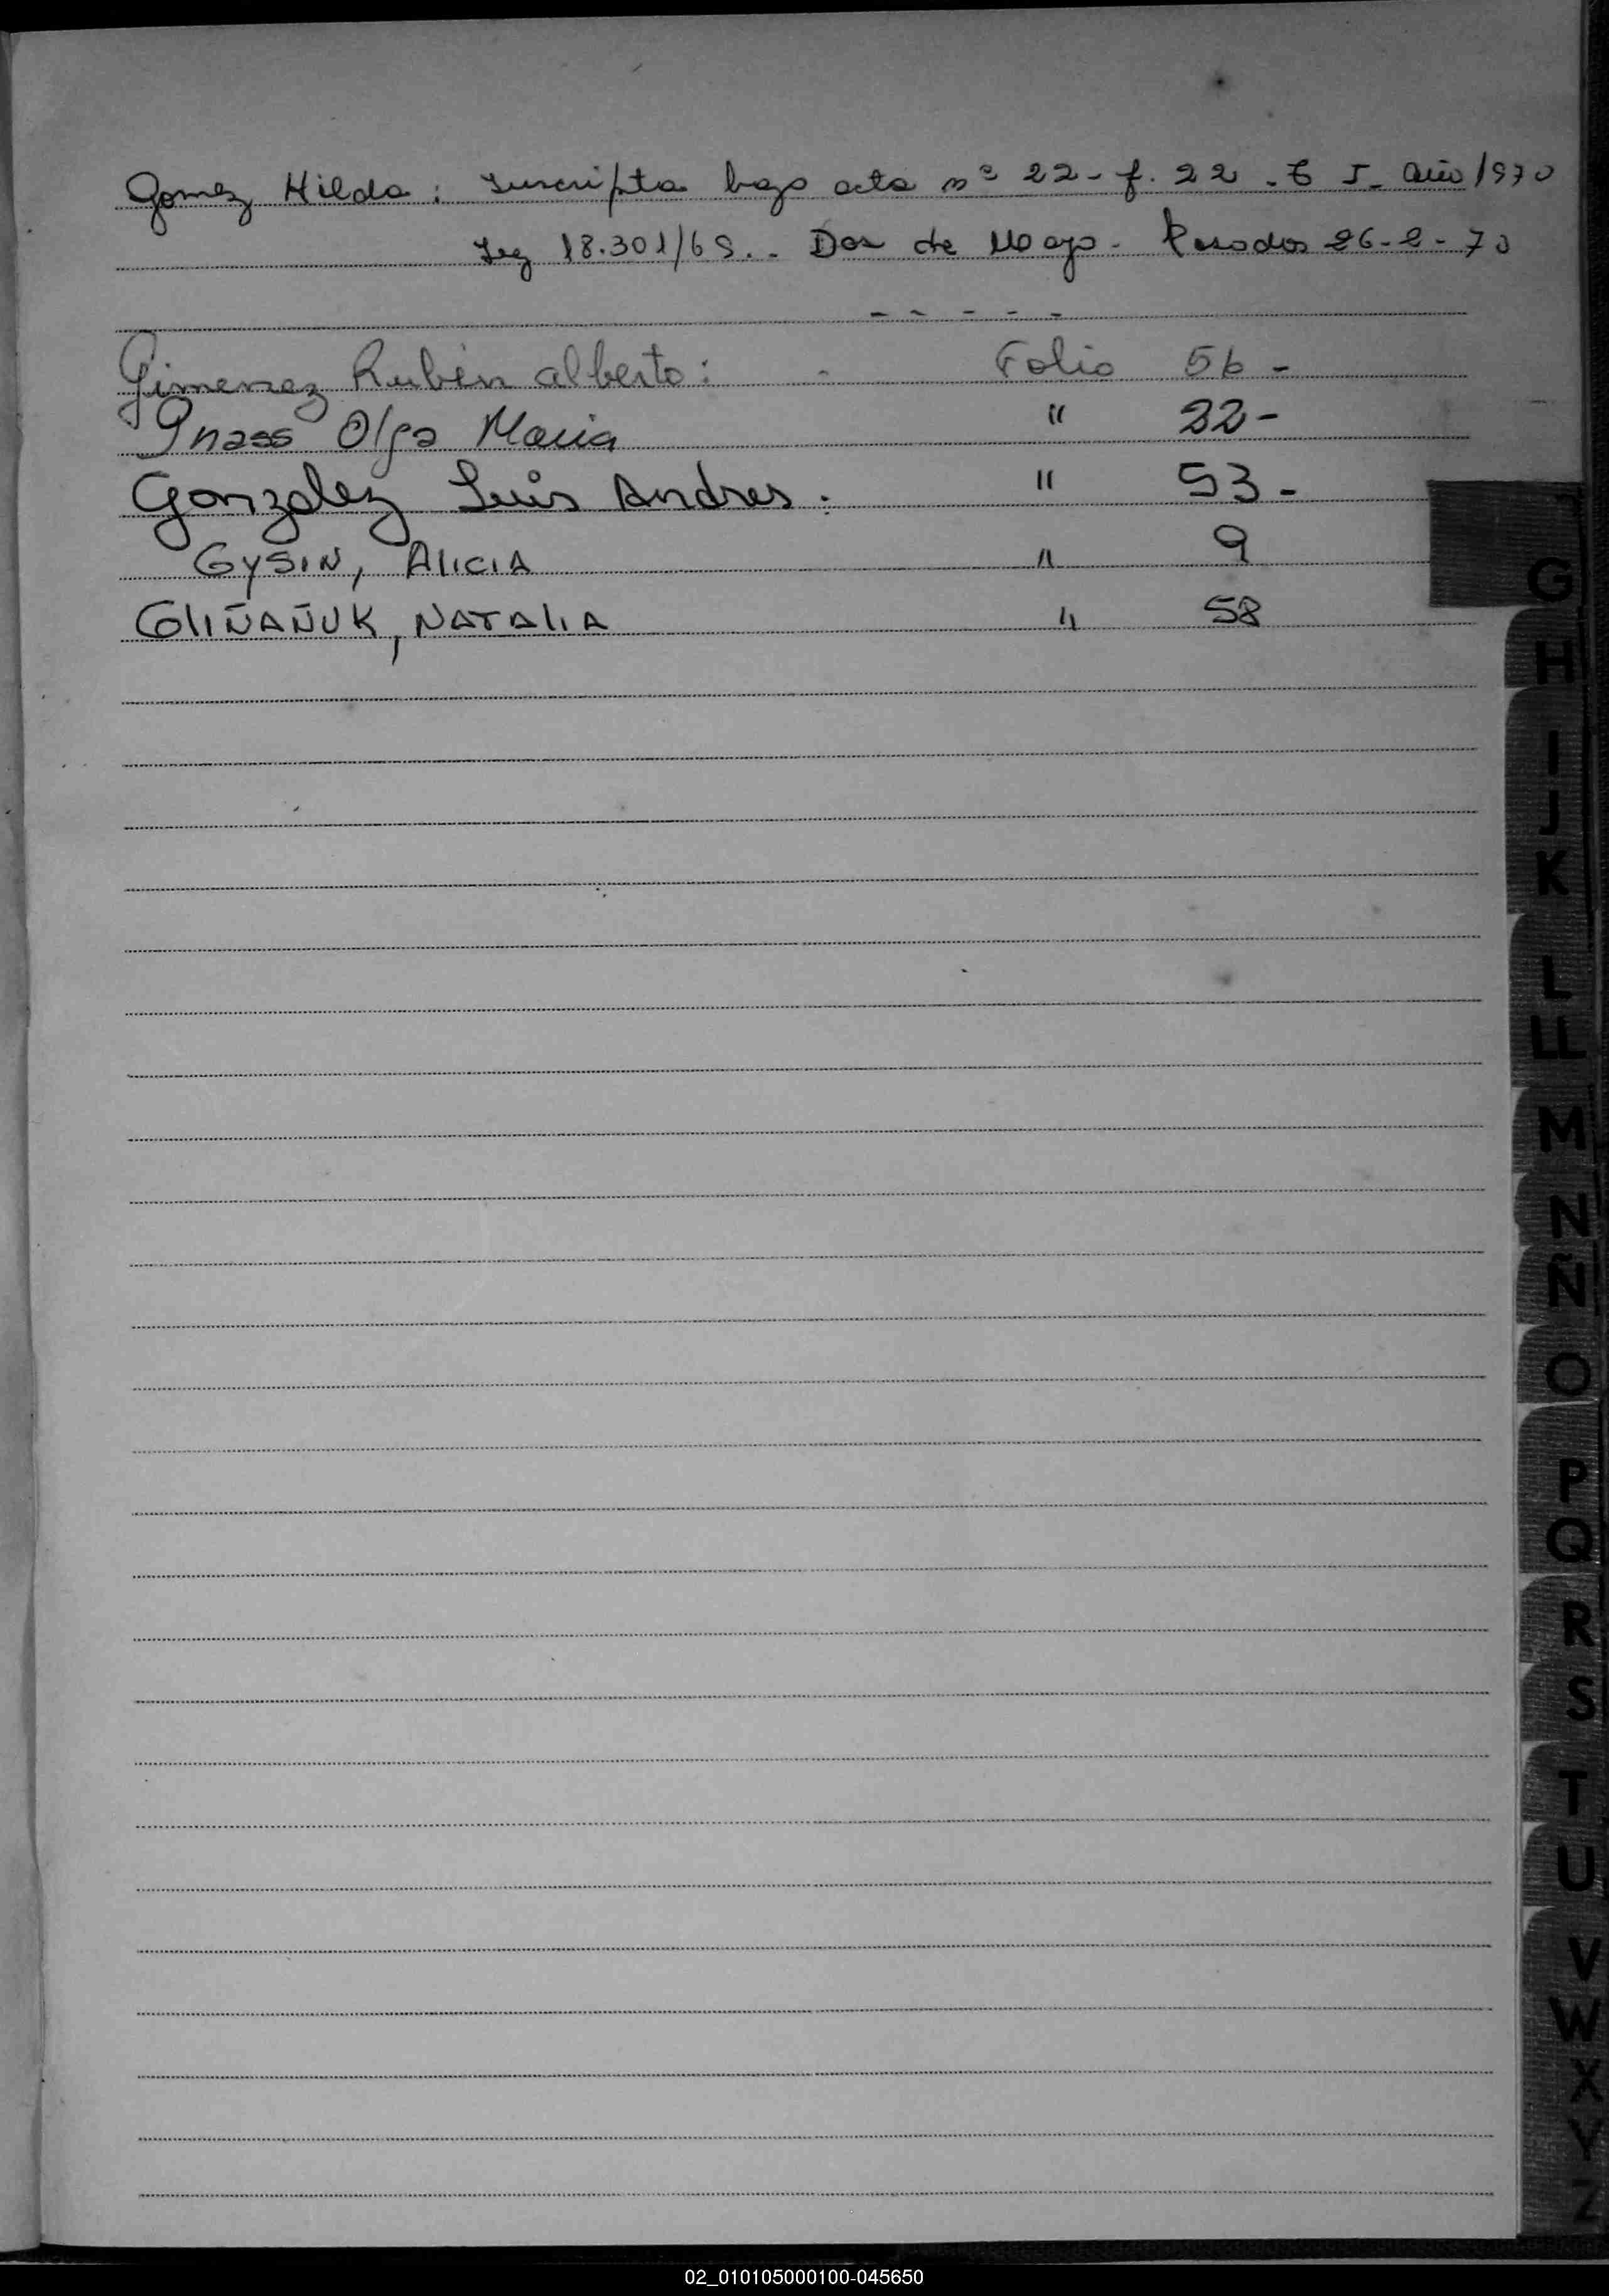 Gomez Hilda: Inscripta bajo acta nº 22 - f. 22 - T I - año 1970
Leg 18.301/69 .- Dos de Mayo - Posadas 26-2-70
- - - - -
Gimenez Rubén Alberto: - Folio 56 -
Gnass Olga Maria " 22 -
Gonzalez Luis Andres: " 53 -
GYSIN, ALICIA " 9
GLIÑAÑUK, NATALIA " 58
G
H
I
J
K
L
LL
M
N
Ñ
O
P
Q
R
S
T
U
V
W
X
Y
Z
02_010105000100-045650